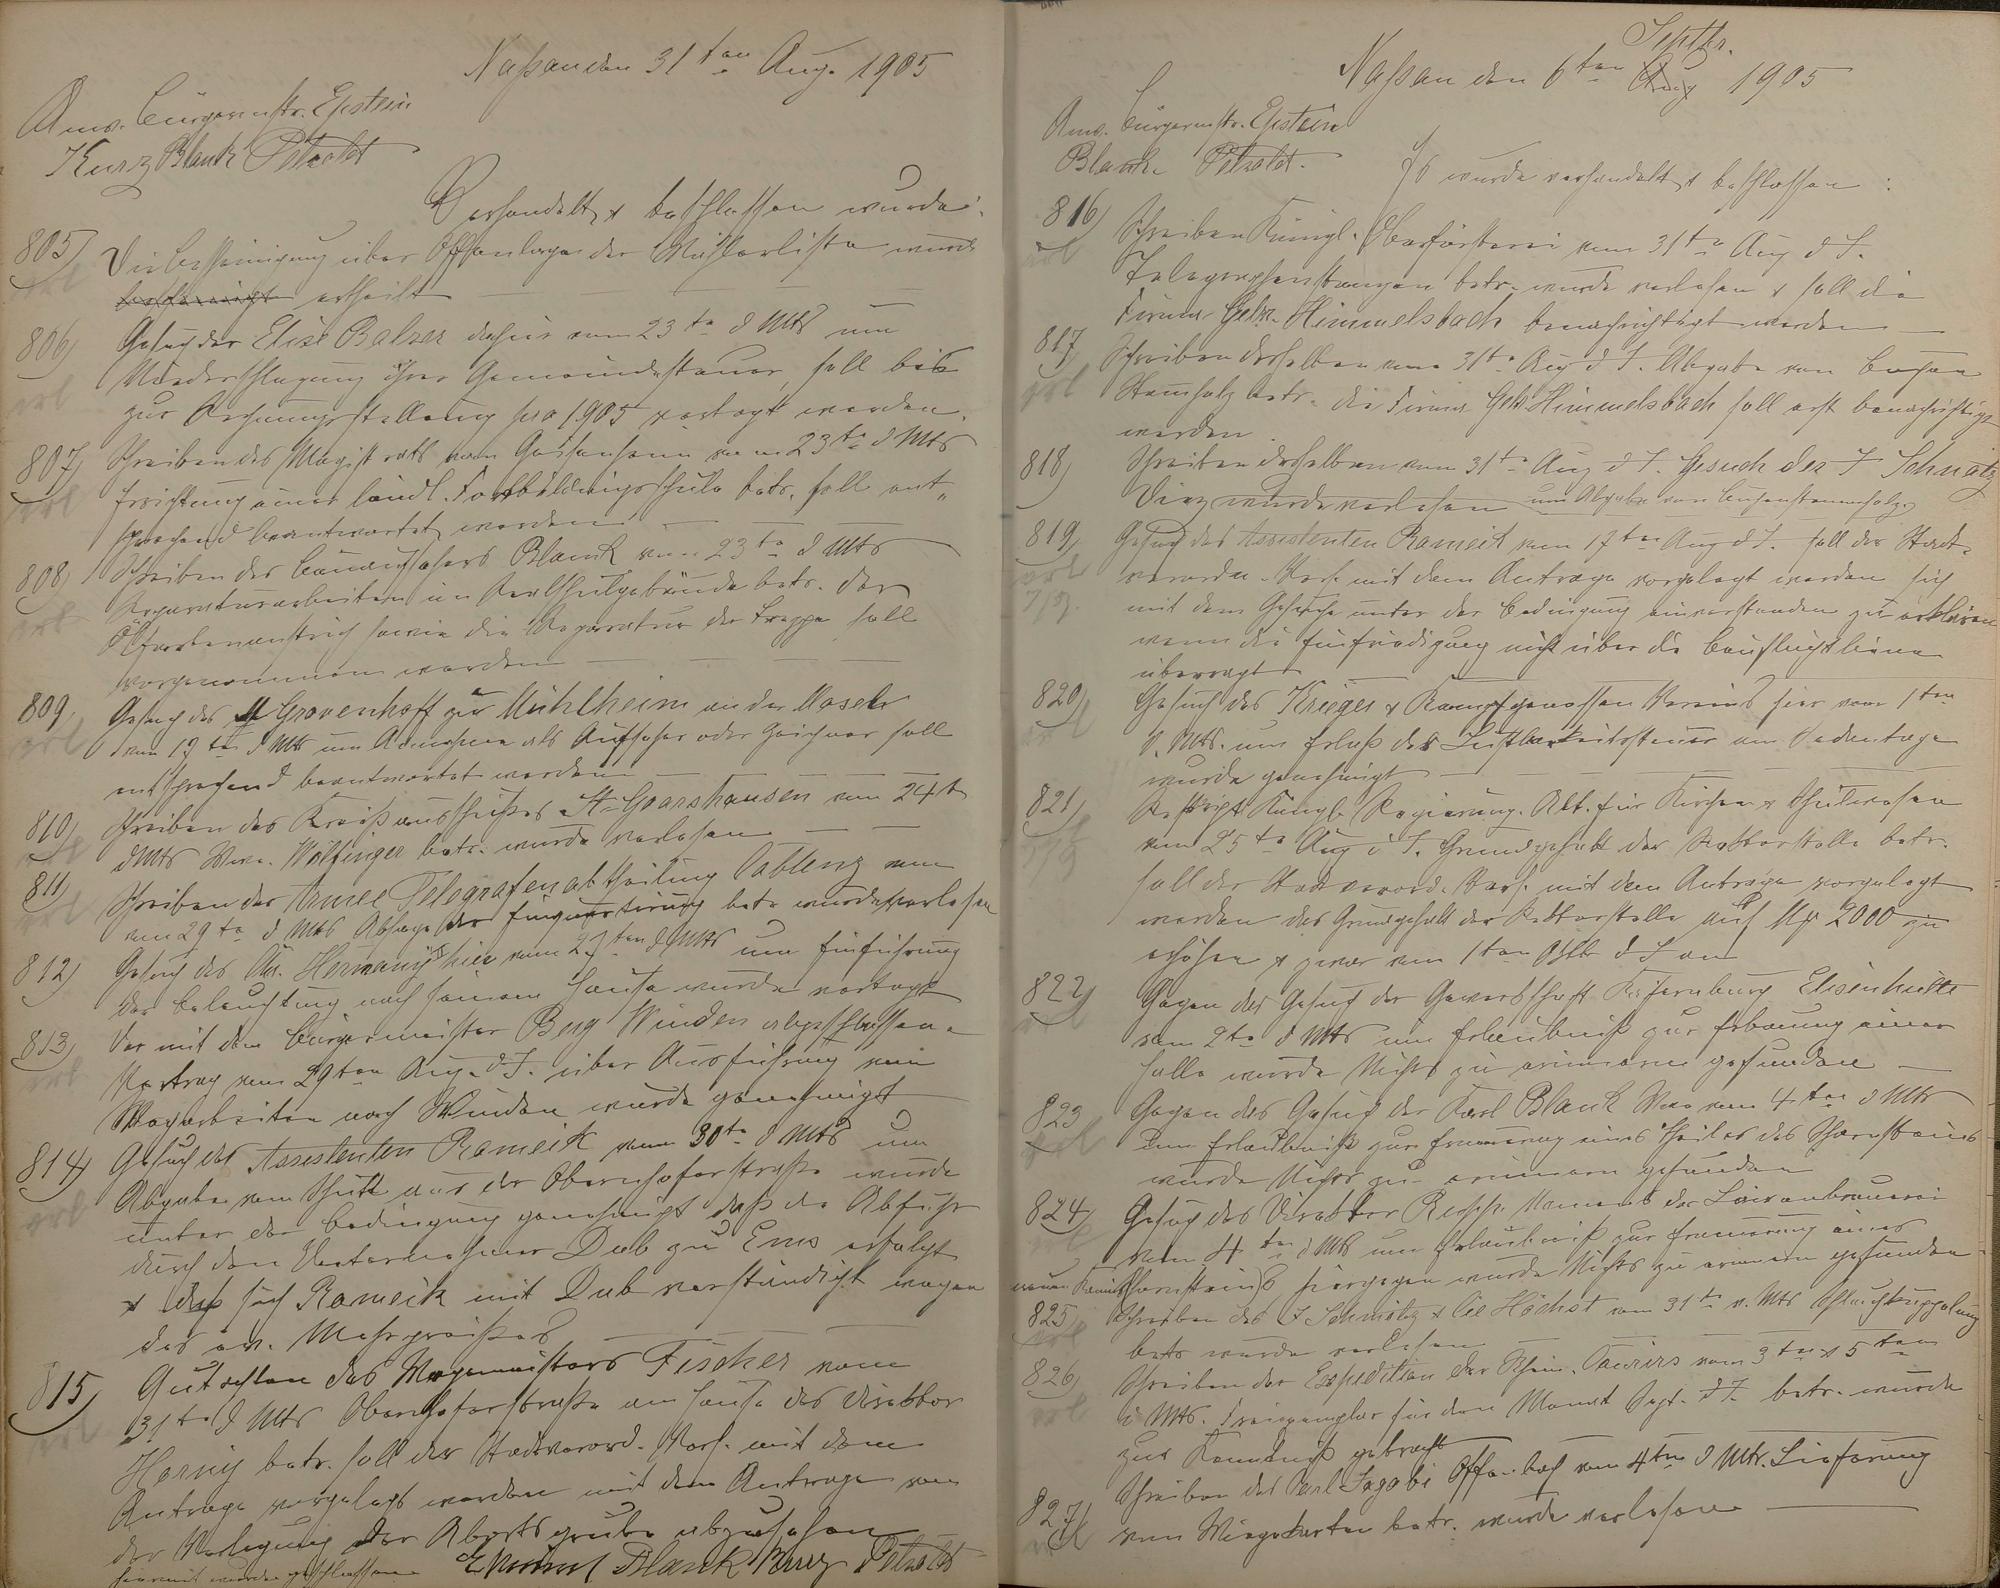 Naßau den 31ten Aug. 1905
Anw. Bürgermstr. Epstein
Kurz Blank Petzoldt
Verhandelt & beschlossen wurde:
805) Die Bescheinigung über Offenlage der Wählerliste wurde
ertheilt
806) Gesuch der Elise Balzer dahier vom 23ten d Mts um
Niederschlagung ihrer Gemeindesteuer, soll bis
zur Rechnungsstellung pro 1905 vertagt werden.
807) Schreiben des Magistrats von Geisenheim vom 23ten d Mts
Errichtung einer ländl. Fortbildungsschule betr. soll ent„
sprechend beantwortet werden
808) Schreiben des Bauaufsehers Blank vom 23ten d Mts
Reparaturarbeiten im Realschulgebäude betr. der
Ölfarbenanstrich sowie die Reparatur der Treppe soll
vorgenommen werden
809. Gesuch des Grovenhoff zu Mühlheim an der Mosel
vom 19ten d Mts um Annahme als Aufseher oder Zeichner soll
entsprechend beantwortet werden
810) Schreiben des Kreisausschußes St. Goarshausen vom 24t
d Mts Wwe. Wölfinger betr. wurde verlesen
811) Schreiben der Armee Telegrafenabtheilung Coblenz vom
vom 29ten d Mts Absage der Einquartirung betr wurde verlesen
812) Gesuch des Hermanÿ hier vom 27ten d Mts um Einführung
der Beleuchtung nach seinem Hause wurde vertagt
813) Der mit dem Bürgermeister Berg Winden abgeschlossene
Vertrag vom 29ten Aug. d J. über Ausführung von
Wegarbeiten nach Winden wurde genehmigt
814) Gesuch des Assistenten Rameik vom 30ten d Mts um
Abgabe vom Schutt aus der Obernhoferstraße wurde
unter der Bedingung genehmigt daß die Abfuhr
durch den Unternehmer Dub zu Ems erfolgt
& daß sich Rameik mit Dub verständigt wegen
des ev. Mehrpreißes
815) Gutachten des Wegemeisters Fischer vom
31ten d Mts Obernhoferstraße am Hause des Direktor
Horny betr. soll der Stadtverord. Vers. mit dem
Antrage vorgelegt werden mit dem Antrage von
der Verlegung der Abortsgrube abzusehen
hiermit wurde geschlossen Blank Kurz Petzoldt
Naßau den 6ten Septbr. 1905
Anw. Bürgermstr. Epstein
Blank Petzoldt.
Es wurde verhandelt & beschlossen:
816) Schreiben Königl. Oberförsterei vom 31ten Aug d J.
Telegraphenstangen betr. wurde verlesen & soll die
Firma Gebr. Himmelsbach benachrichtigt werden
817) Schreiben derselben vom 31ten Aug d J. Abgabe von Buchen
Stammholz betr. die Firma Gebr Himmelsbach soll erst benachrichtigt
werden.
818) Schreiben derselben vom 31ten Aug d J. Gesuch des J Schmitz
Diez wurde verlesen um Abgabe von Buchenstammholz
819) Gesuch des Assistenten Rameik vom 17ten Aug d J. soll der Stadt-
verordn. Vers. mit dem Antrage vorgelegt werden sich
mit dem Gesuche unter der Bedingung einverstanden zu erklären
wenn die Einfriedigung nicht über die Baufluchtlinie
überragt
820) Gesuch des Krieger & Kampfgenossen Vereins hier vom 1ten
d. Mts. um Erlaß der Lustbarkeitssteuer am Sedantage
wurde genehmigt
821) Reskript Königl. Regierung. Abt. für Kirchen & Schulwesen
vom 25ten Aug d J. Grundgehalt der Rektorstelle betr.
soll der Stadtverord. Vers. mit dem Antrage vorgelegt
werden das Grundgehalt der Rektorstelle auf Mk 2000 zu
erhöhen & zwar vom 1ten Oktbr d J an
822) Gegen das Gesuch der Gewerkschaft Käfernburg Elisenhütte
vom 2ten d Mts um Erlaubniß zur Erbauung einer
Halle wurde Nichts zu erinnern gefunden
823 Gegen das Gesuch der Karl Blank Wwe vom 4ten d Mts
um Erlaubniß zur Erneuerung eines Theiles des Schornsteins
wurde Nichts zu erinnern gefunden
824) Gesuch des Direktor Namens der Löwenbrauerei
vom 4ten d Mts um Erlaubniß zur Erneuerung eines
neuen Kamin(Schornstein)s hiergegen wurde Nichts zu erinnern gefunden
825) Schreiben des J Schmolz & Cie Höchst vom 31ten v. Mts Schlauchkuppelung
betr wurde verlesen
826) Schreiben der Expedition des Rhein. Kuriers vom 3ten & 5ten
d Mts. Freiexemplar für den Monat Sept. d J. betr. wurde
zur Kenntniß gebracht
827) Schreiben des Carl Jagobi Offenbach vom 4ten d Mts. Lieferung
von Wiegekarten betr. wurde verlesen